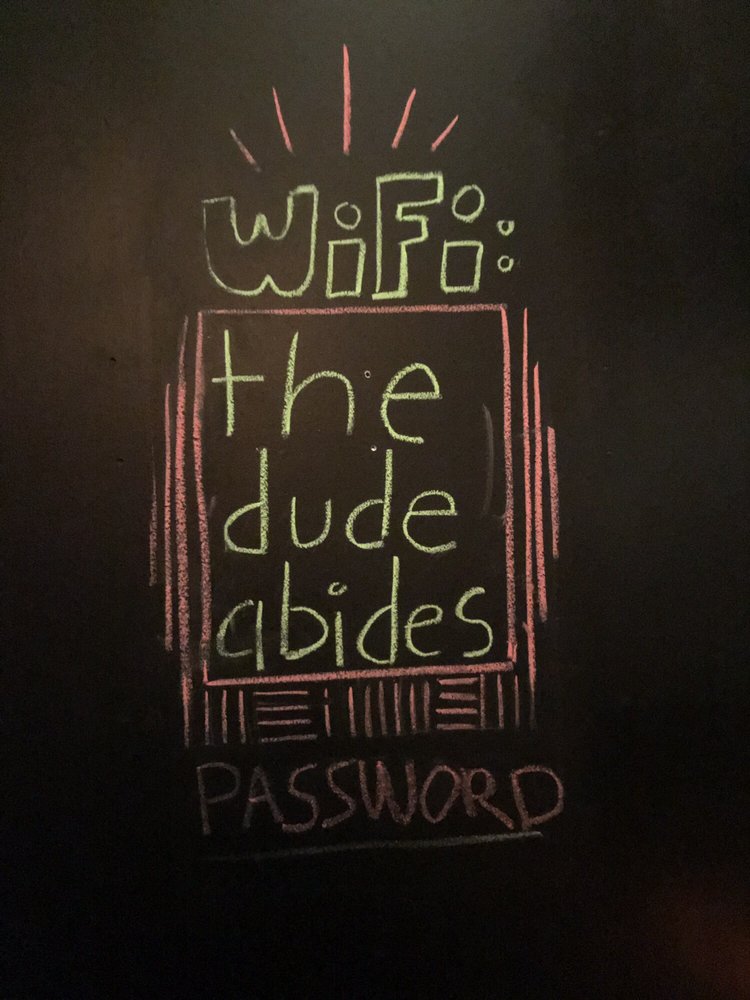 WiFi:
the
dude
abides
PASSWORD